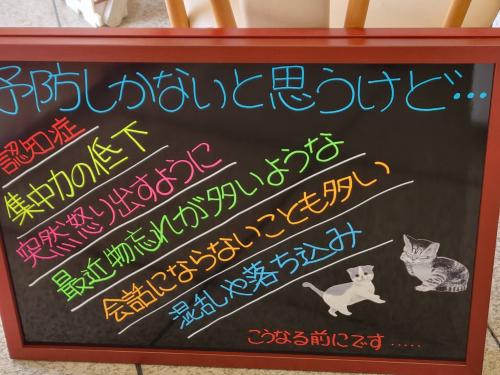 予防しかないと思うけど…
認知症
集中力の低下
突然怒り出すように
最近物忘れが多いような
会話にならないことも多い
混乱や落ち込み
こうなる前にです.....